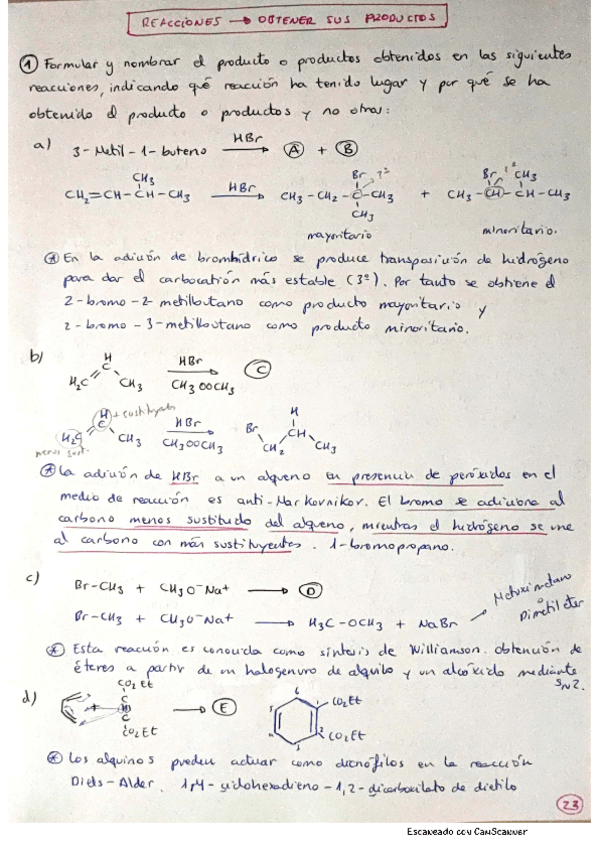 REACCIONES → OBTENER SUS PRODUCTOS
① Formular y nombrar el producto o productos obtenidos en las siguientes
reacciones, indicando qué reacción ha tenido lugar y por qué se ha
obtenido el producto o productos y no otros:
a) 3-Metil-1-buteno HBr → A + B
CH₃ Br 2º Br 2º CH₃
CH₂=CH-CH-CH₃ HBr → CH₃-CH₂-C-CH₃ + CH₃-CH-CH-CH₃
CH₃
mayoritario minoritario.
En la adición de bromhídrico se produce transposición de hidrógeno
para dar el carbocatión más estable (3º). Por tanto se obtiene el
2-bromo-2-metilbutano como producto mayoritario y
2-bromo-3-metilbutano como producto minoritario.
b) H
H₂C C CH₃ HBr → C
CH₃OOCH₃
H + sustituyente
H₂C C CH₃ HBr → Br CH₂ CH H CH₃
menos sust. CH₃OOCH₃
La adición de HBr a un alqueno en presencia de peróxidos en el
medio de reacción es anti-Markovnikov. El bromo se adiciona al
carbono menos sustituido del alqueno, mientras el hidrógeno se une
al carbono con más sustituyentes. 1-bromopropano.
c) Br-CH₃ + CH₃O⁻Na⁺ → D
Br-CH₃ + CH₃O⁻Na⁺ → H₃C-OCH₃ + NaBr → Metoximetano
o
Dimetileter
Esta reacción es conocida como síntesis de Williamson. obtención de
éteres a partir de un halogenuro de alquilo y un alcóxido mediante
SN2.
d) CO₂Et
C
+ C → E
CO₂Et
6
5 1 CO₂Et
4 2 CO₂Et
3
Los alquinos pueden actuar como dienófilos en la reacción
Diels-Alder. 1,4-ciclohexadieno-1,2-dicarboxilato de dietilo
23
Escaneado con CamScanner